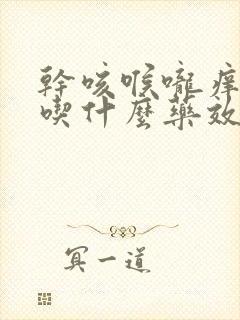 幹咳喉嚨痒
喫什麼藥效
冥一道